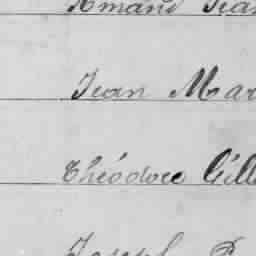 Amand Jean
Jean Mar
Théodore Gill
Joseph P